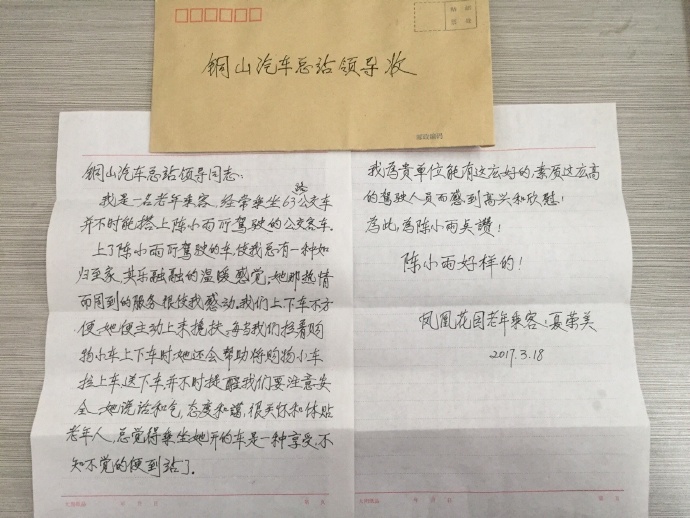 铜山汽车总站领导收
邮政编码
铜山汽车总站领导同志:
我是一名老年乘客,经常乘坐63路公交车
并不时能搭上陈小雨所驾驶的公交客车。
上了陈小雨所驾驶的车,使我总有一种如
归至家,其乐融融的温暖感觉,她那热情
而周到的服务很使我感动。我们上下车不方
便,她便主动上来搀扶,每当我们拉着购
物小车上下车时,她还会帮助将购物小车
拉上车,送下车,并不时提醒我们要注意安
全。她说话和气,态度和蔼,很关怀和体贴
老年人,总觉得乘坐她开的车是一种享受,不
知不觉的便到站了。
我为貴单位能有这么好的,素质这么高
的驾驶人员而感到高兴和欣慰!
为此,为陈小雨点讚!
陈小雨好样的!
凤凰花园老年乘客:夏荣美
2017.3.18